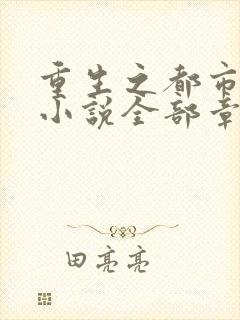 重生之都市
小说全部章
田亮亮